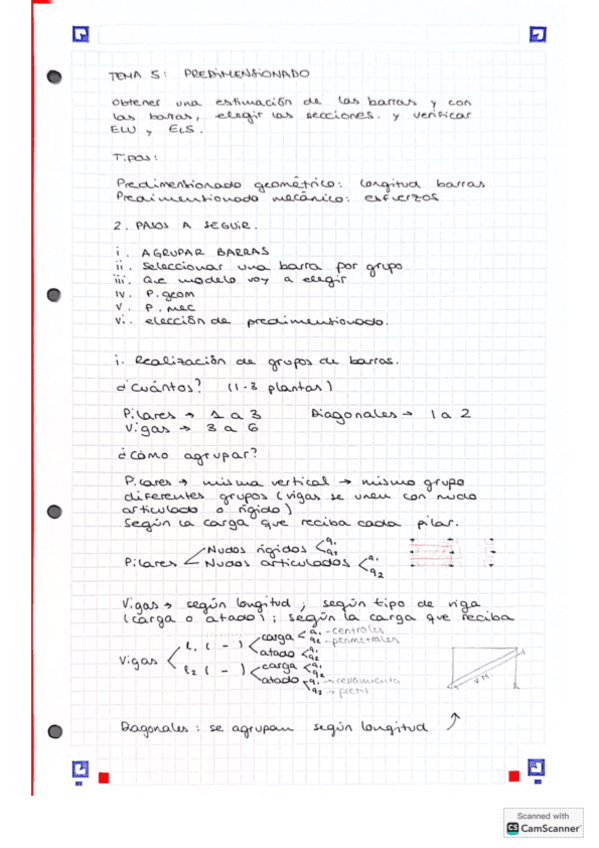 TEMA 5: PREDIMENSIONADO
Obtener una estimación de las barras y con
las barras, elegir las secciones. y verificar
ELU y ELS.
Tipos:
Predimensionado geométrico: longitud barras
Predimensionado mecánico: esfuerzos
2. PASOS A SEGUIR.
i. AGRUPAR BARRAS
ii. Seleccionar una barra por grupo
iii. Que modelo voy a elegir
iv. P. geom
v. P. mec
vi. elección de predimensionado.
i. Realización de grupos de barras.
¿Cuántos? (1-3 plantas)
Pilares → 1 a 3 Diagonales → 1 a 2
Vigas → 3 a 6
¿Cómo agrupar?
Pilares → misma vertical → mismo grupo
diferentes grupos (vigas se unen con nudo
articulado o rígido)
Según la carga que reciba cada pilar.
Nudos rígidos q1
q2
Pilares Nudos articulados q1
q2
Vigas → según longitud ; según tipo de viga
(carga o atado) ; según la carga que reciba
Vigas l1 ( - ) carga q1 - centrales
q2 - perimetrales
atado q1
q2
l2 ( - ) carga q1
q2
atado q1 → cerramiento
q2 → pretil
Diagonales : se agrupan según longitud
Scanned with
CS CamScanner